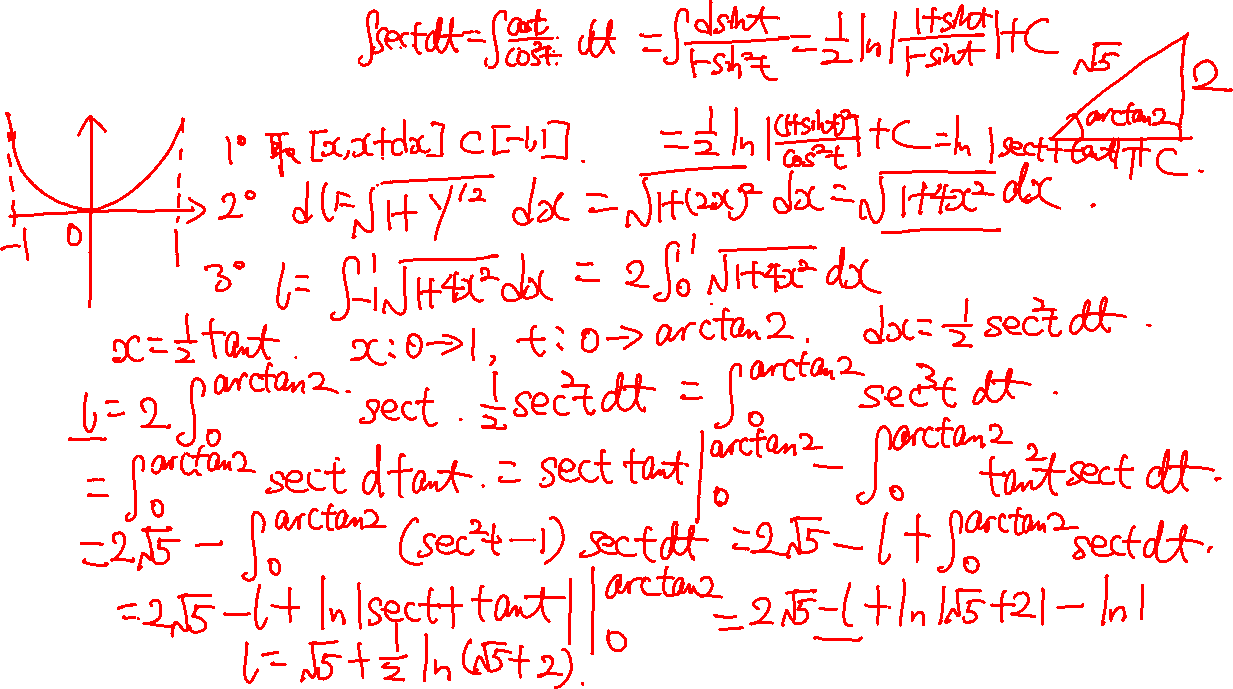 ∫sect dt = ∫ cost/cos²t dt = ∫ dsint/(1-sin²t) = 1/2 ln|(1+sint)/(1-sint)| + C
√5
2
arctan2
= 1/2 ln|(1+sint)²/cos²t| + C = ln|sect+tant| + C.
-1 0 1
1° 取 [x, x+dx] ⊂ [-1,1].
2° dl = √(1+y'²) dx = √(1+(2x)²) dx = √(1+4x²) dx.
3° l = ∫₋₁¹ √(1+4x²) dx = 2∫₀¹ √(1+4x²) dx
x = 1/2 tant. x: 0→1, t: 0→arctan2. dx = 1/2 sec²t dt.
l = 2∫₀^arctan2 sect · 1/2 sec²t dt = ∫₀^arctan2 sec³t dt.
= ∫₀^arctan2 sect dtant. = sect tant |₀^arctan2 - ∫₀^arctan2 tan²t sect dt.
= 2√5 - ∫₀^arctan2 (sec²t-1) sect dt = 2√5 - l + ∫₀^arctan2 sect dt.
= 2√5 - l + ln|sect+tant| |₀^arctan2 = 2√5 - l + ln|√5+2| - ln1
l = √5 + 1/2 ln(√5+2).